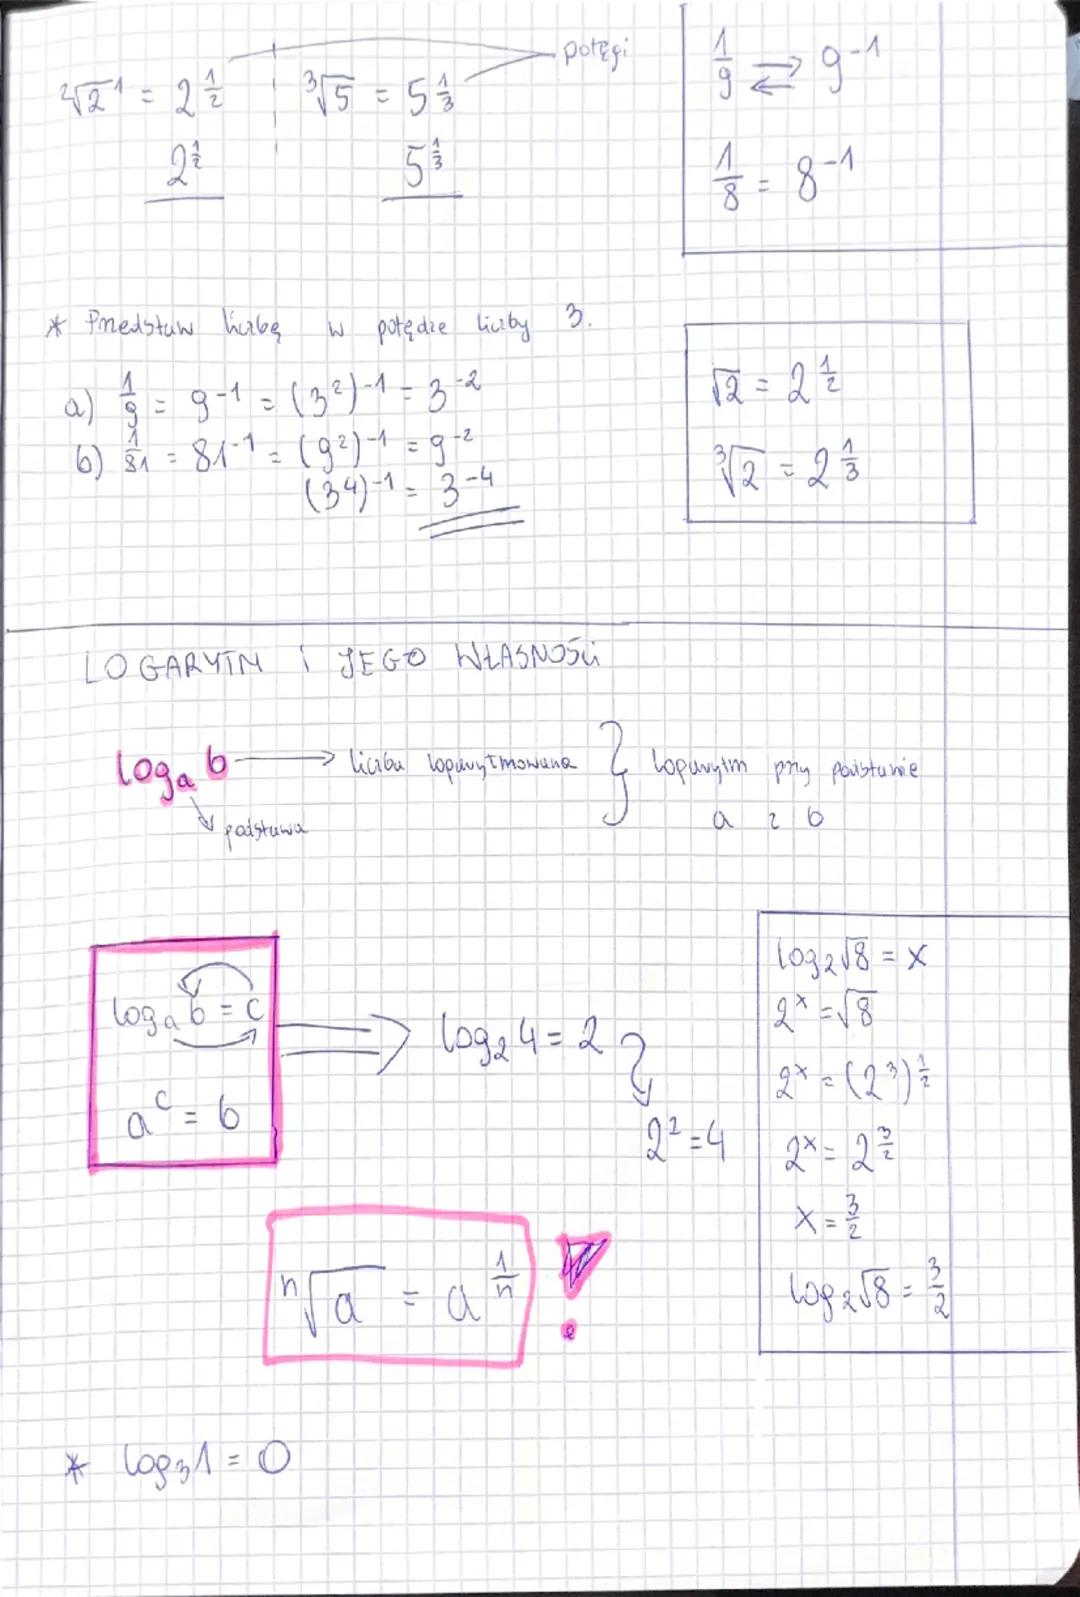 ²√2¹ = 2^½ | ³√5 = 5^⅓ potęgi
2^½ 5^⅓
1/9 ⇄ 9⁻¹
1/8 = 8⁻¹
* Przedstaw liczbę w potędze liczby 3.
a) 1/9 = 9⁻¹ = (3²)⁻¹ = 3⁻²
b) 1/81 = 81⁻¹ = (9²)⁻¹ = 9⁻²
(3⁴)⁻¹ = 3⁻⁴
√2 = 2^½
³√2 = 2^⅓
LOGARYTM i JEGO WŁASNOŚCI
logₐ b → liczba logarytmowana } logarytm przy podstawie
podstawa a z b
logₐ b = c ⇒ log₂ 4 = 2
aᶜ = b 2² = 4
log₂√8 = x
2ˣ = √8
2ˣ = (2³)^½
2ˣ = 2^(3/2)
x = 3/2
log₂√8 = 3/2
ⁿ√a = a^(1/n) !
* log₃1 = 0